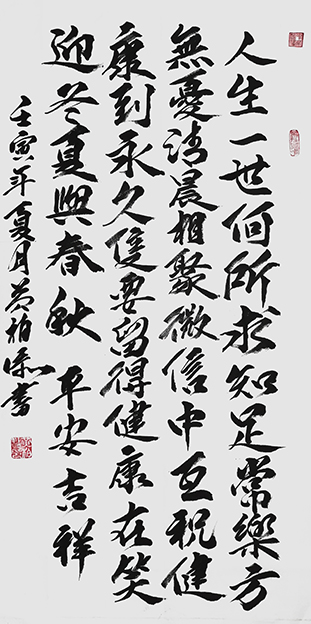 人生一世何所求知足常樂方
無憂清晨相聚微信中互祝健
康到永久隻要留得健康在笑
迎冬夏與春秋 平安吉祥
壬寅年夏月 柏 書